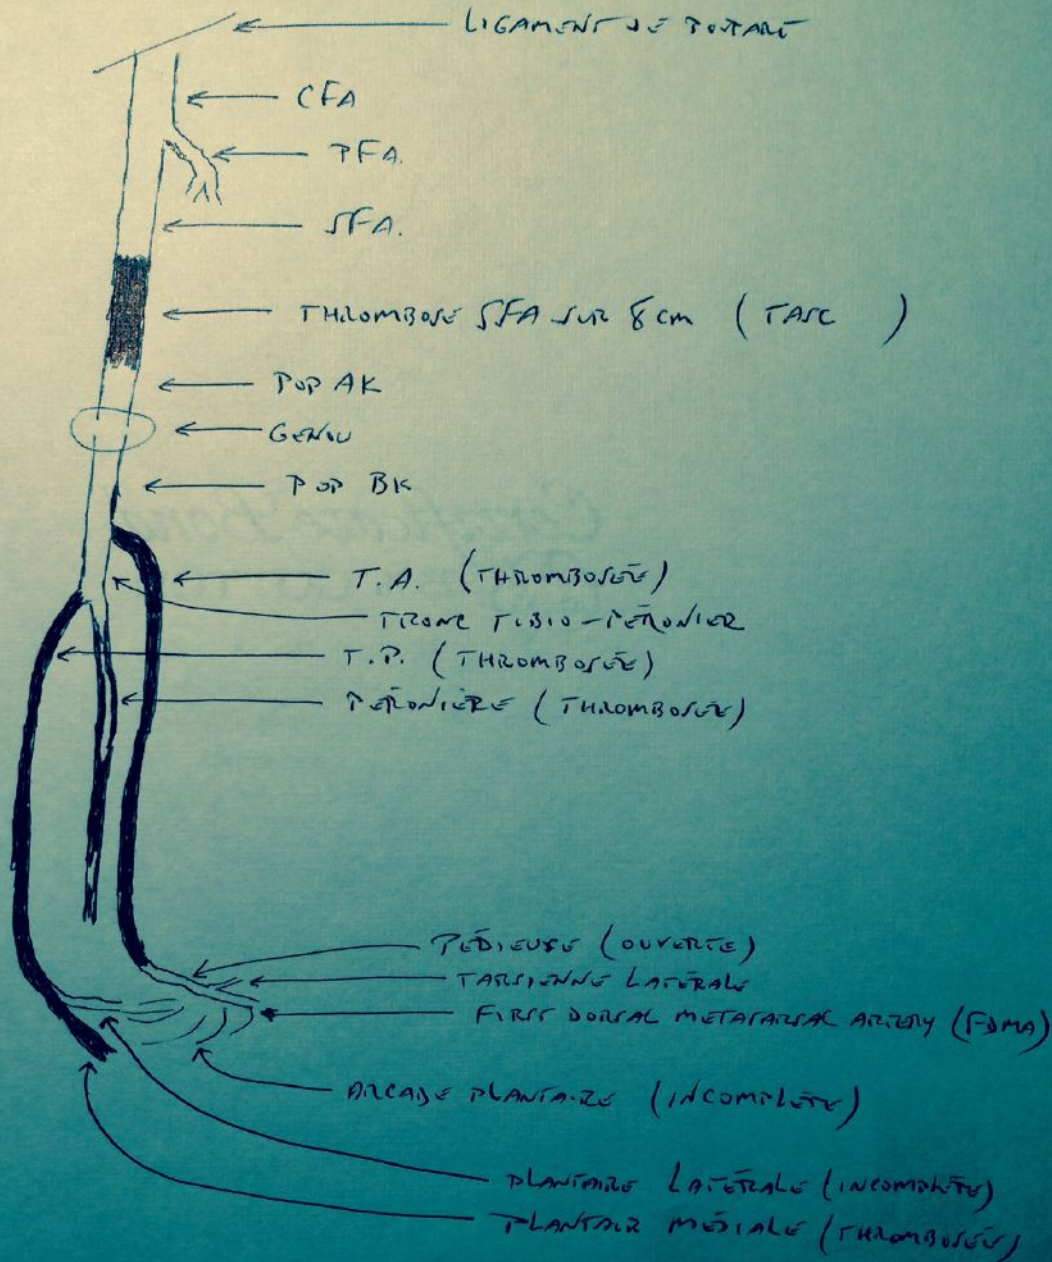 LIGAMENT DE POUPART
CFA
PFA.
SFA.
THROMBOSE SFA SUR 8 cm (TASC )
POP AK
GENOU
POP BK
T.A. (THROMBOSÉE)
TRONC TIBIO-PÉRONIER
T.P. (THROMBOSÉE)
PÉRONIÈRE (THROMBOSÉE)
PÉDIEUSE (OUVERTE)
TARSIENNE LATÉRALE
FIRST DORSAL METATARSAL ARTERY (FDMA)
ARCADE PLANTAIRE (INCOMPLÈTE)
PLANTAIRE LATÉRALE (INCOMPLÈTE)
PLANTAIR MÉDIALE (THROMBOSÉE)